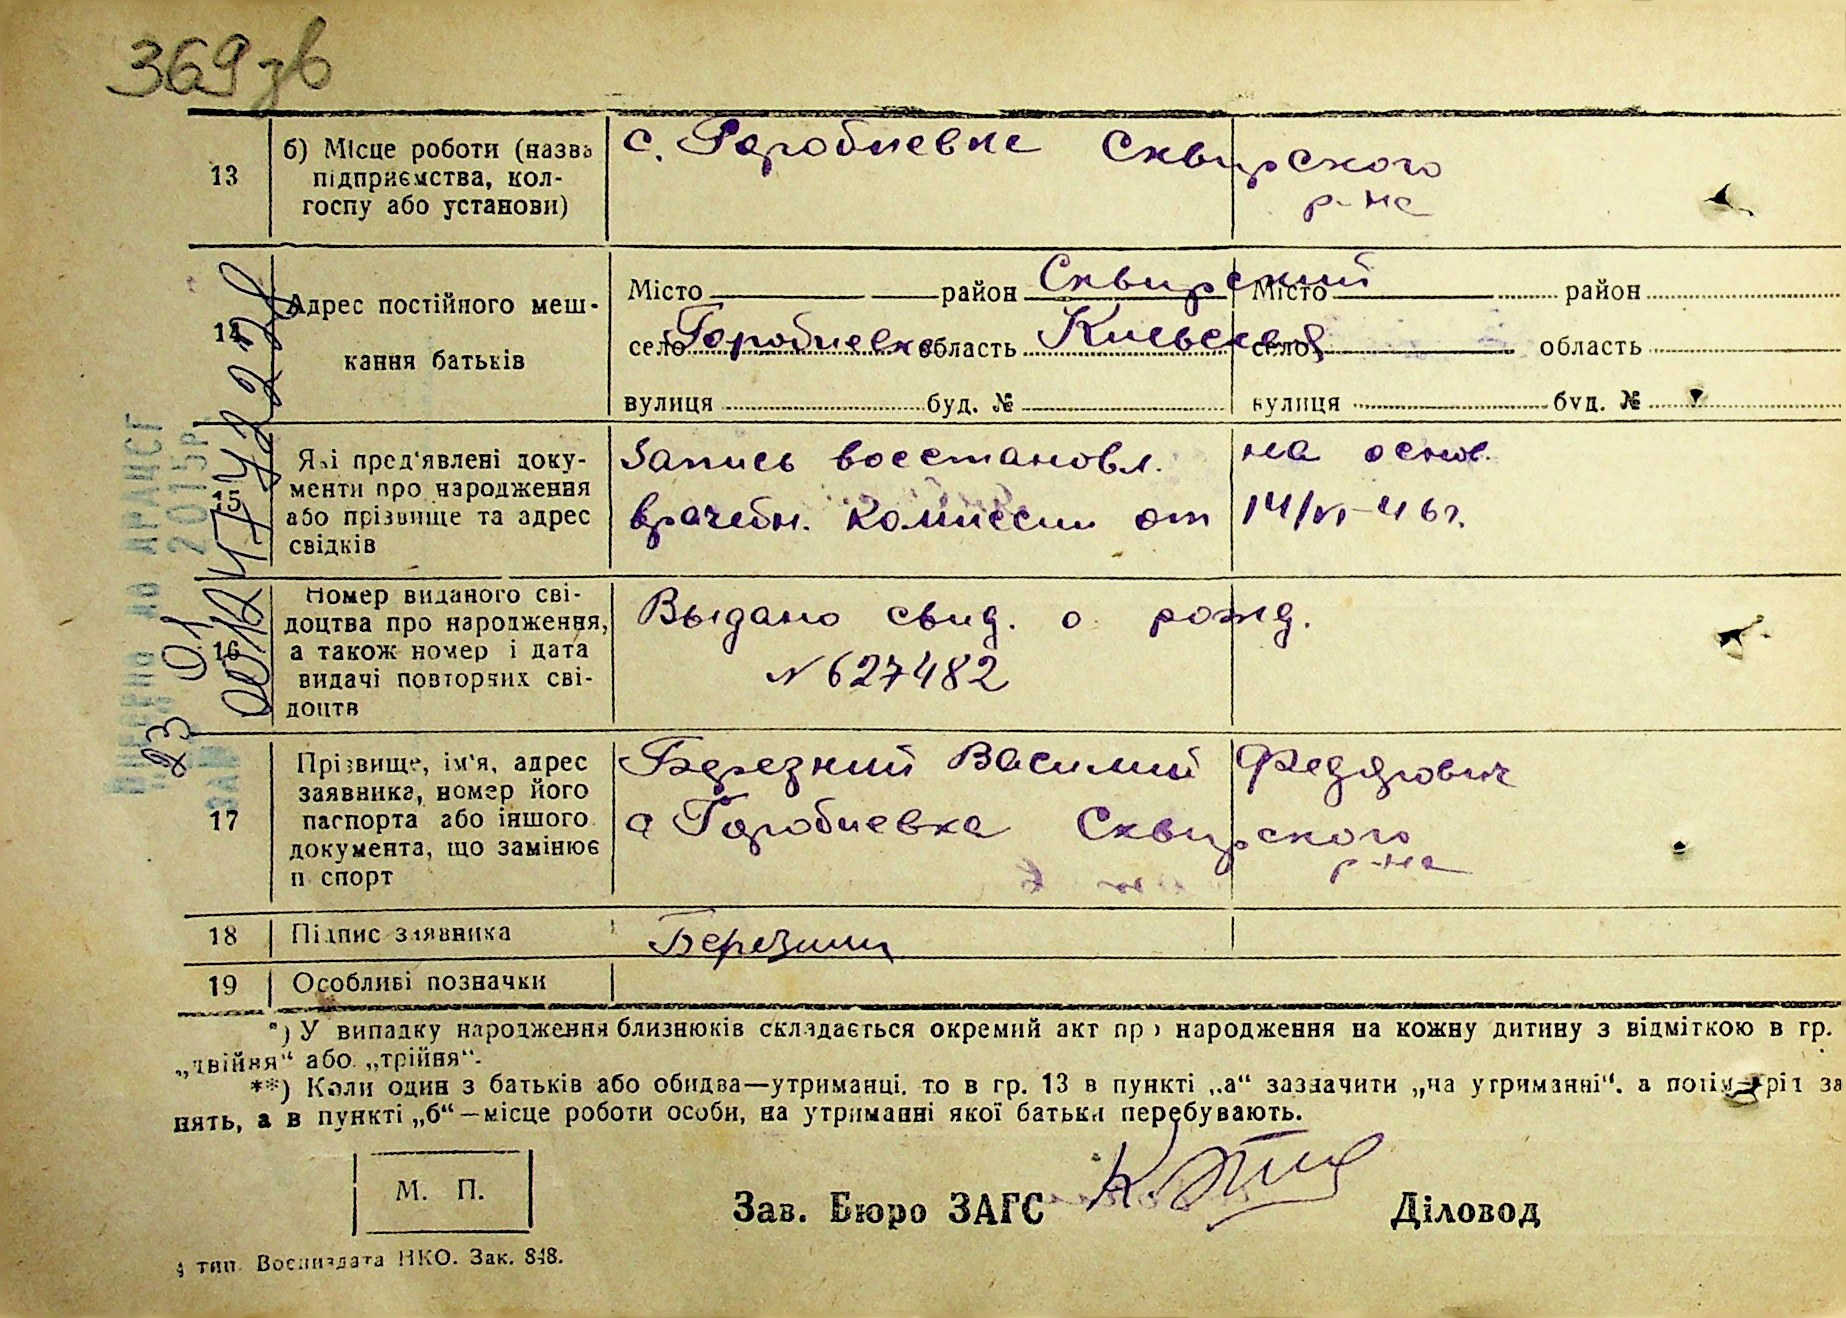 369 зв
13
б) Місце роботи (назва
підприємства, кол-
госпу або установи)
с. Горобиевке Сквирского
р-на
14
Адрес постійного меш-
кання батьків
Місто район Сквирский Місто район
село Горобиевка область Киевская село область
вулиця буд. № вулиця буд. №
15
Які пред'явлені доку-
менти про народження
або прізвище та адрес
свідків
Запись восстановл. на основ.
врачебн. комиссии от 14/VI-46 г.
16
Номер виданого сві-
доцтва про народження,
а також номер і дата
видачі повторних сві-
доцтв
Выдано свид. о рожд.
N 627482
17
Прізвище, ім'я, адрес
заявника, номер його
паспорта або іншого
документа, що замінює
п спорт
Березний Василий Федорович
с Горобиевка Сквирского
р-на
18
Підпис заявника
19
Особливі позначки
*) У випадку народження близнюків складається окремий акт про народження на кожну дитину з відміткою в гр.
„двійня" або „трійня".
**) Коли один з батьків або обидва—утриманці, то в гр. 13 в пункті „а" зазначити „на утриманні", а потім рід за
нять, а в пункті „б"—місце роботи особи, на утриманні якої батьки перебувають.
М. П.
Зав. Бюро ЗАГС Діловод
тип. Воениздата НКО. Зак. 848.
до ДРАЦСГ
2015р
23 01